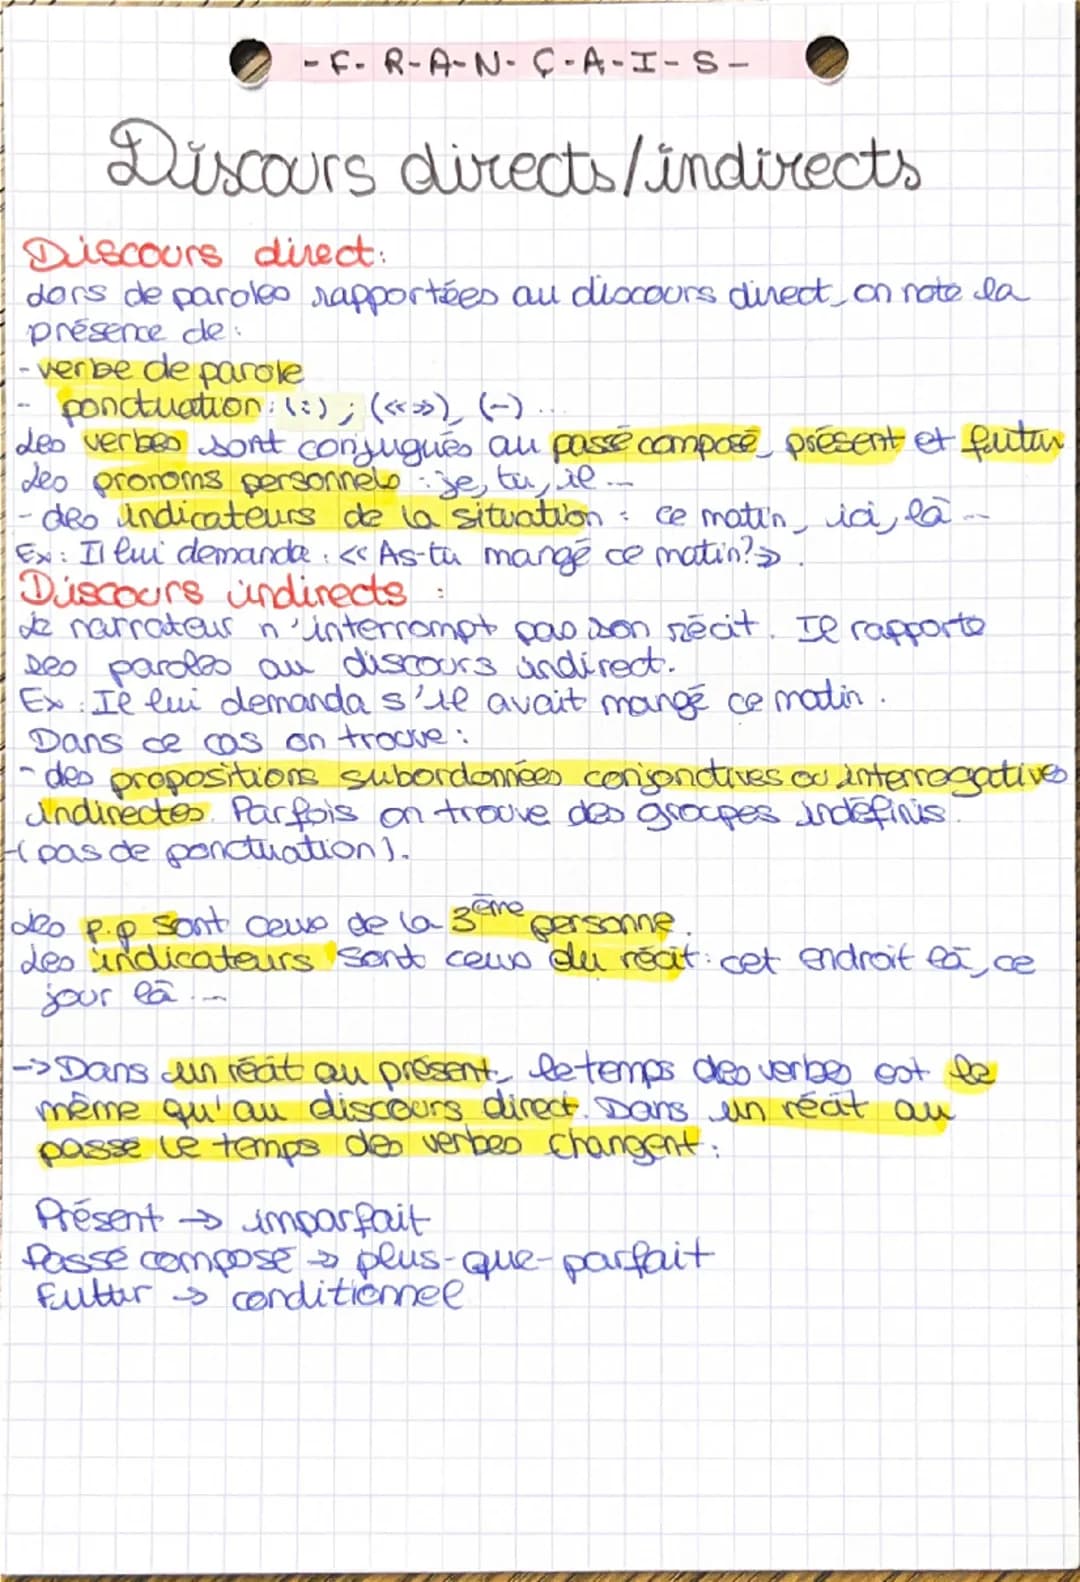 -F-R-A-N-Ç-A-I-S-
Discours directs/indirects
Discours direct:
Lors de paroles rapportées au discours direct, on note la
présence de:
- verbe de parole
- ponctuation: (:) ; («»), (-)...
Les verbes sont conjugués au passé composé, présent et futur
Les pronoms personnels : je, tu, il...
- des indicateurs de la situation : ce matin, ici, là...
Ex: Il lui demanda : « As-tu mangé ce matin?».
Discours indirects :
Le narrateur n'interrompt pas son récit. Il rapporte
ses paroles au discours indirect.
Ex: Il lui demanda s'il avait mangé ce matin.
Dans ce cas on trouve:
- des propositions subordonnées conjonctives ou interrogatives
indirectes. Parfois on trouve des groupes indéfinis.
(pas de ponctuation).
Les p.p sont ceux de la 3ème personne.
Les indicateurs sont ceux du récit: cet endroit là, ce
jour là...
-> Dans un récit au présent, le temps des verbes est le
même qu'au discours direct. Dans un récit au
passe le temps des verbes changent:
Présent -> imparfait
Passé composé -> plus-que-parfait
Futur -> conditionnel